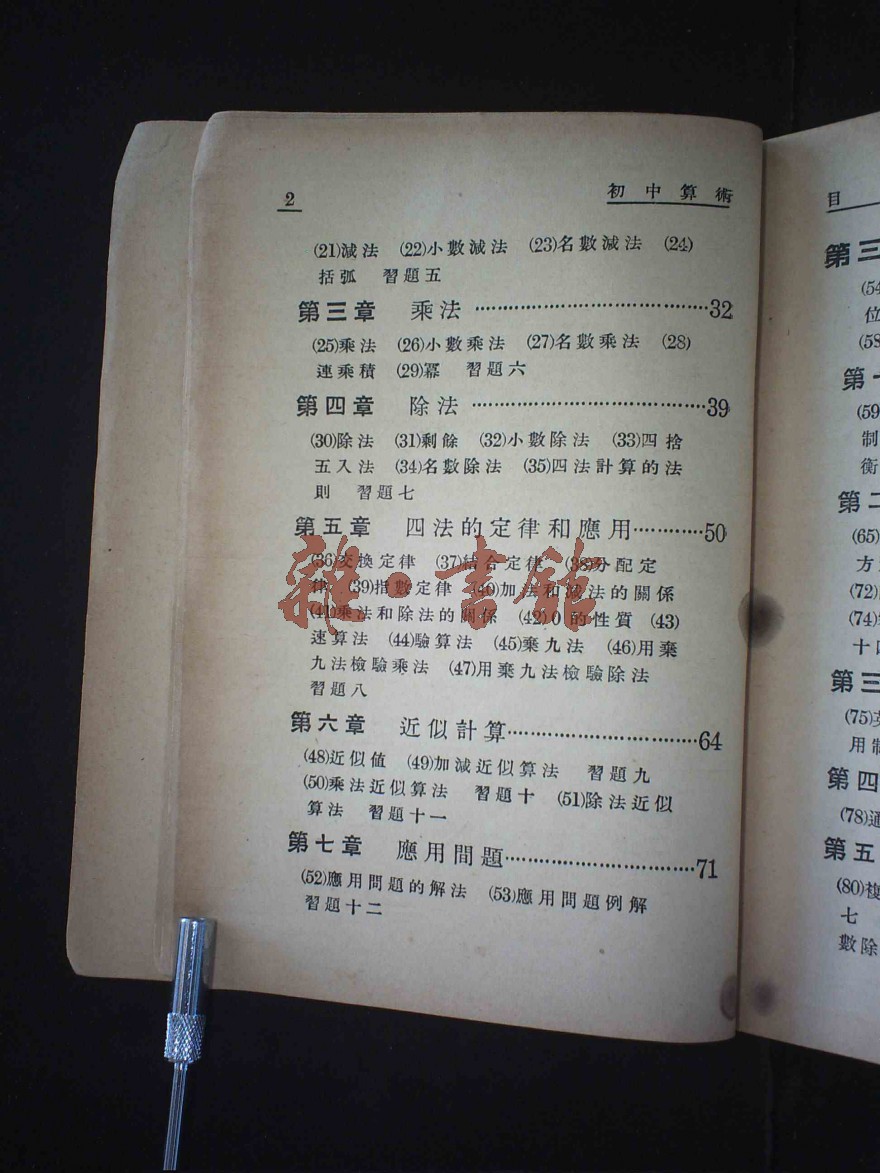 2
初中算術
(21)減法 (22)小數減法 (23)名數減法 (24)
括弧 習題五
第三章 乘法……………………………32
(25)乘法 (26)小數乘法 (27)名數乘法 (28)
連乘積 (29)冪 習題六
第四章 除法……………………………39
(30)除法 (31)剩餘 (32)小數除法 (33)四捨
五入法 (34)名數除法 (35)四法計算的法
則 習題七
第五章 四法的定律和應用…………50
(36)交換定律 (37)結合定律 (38)分配定
律 (39)指數定律 (40)加法和減法的關係
(41)乘法和除法的關係 (42)0的性質 (43)
速算法 (44)驗算法 (45)棄九法 (46)用棄
九法檢驗乘法 (47)用棄九法檢驗除法
習題八
第六章 近似計算…………………………64
(48)近似値 (49)加減近似算法 習題九
(50)乘法近似算法 習題十 (51)除法近似
算法 習題十一
第七章 應用問題…………………………71
(52)應用問題的解法 (53)應用問題例解
習題十二
雜·書館
目
第三
(54
位
(58
第一
(59
制
衡
第二
(65)
方
(72)
(74)
十四
第三
(75)英
用制
第四
(78)通
第五
(80)複
七
數除